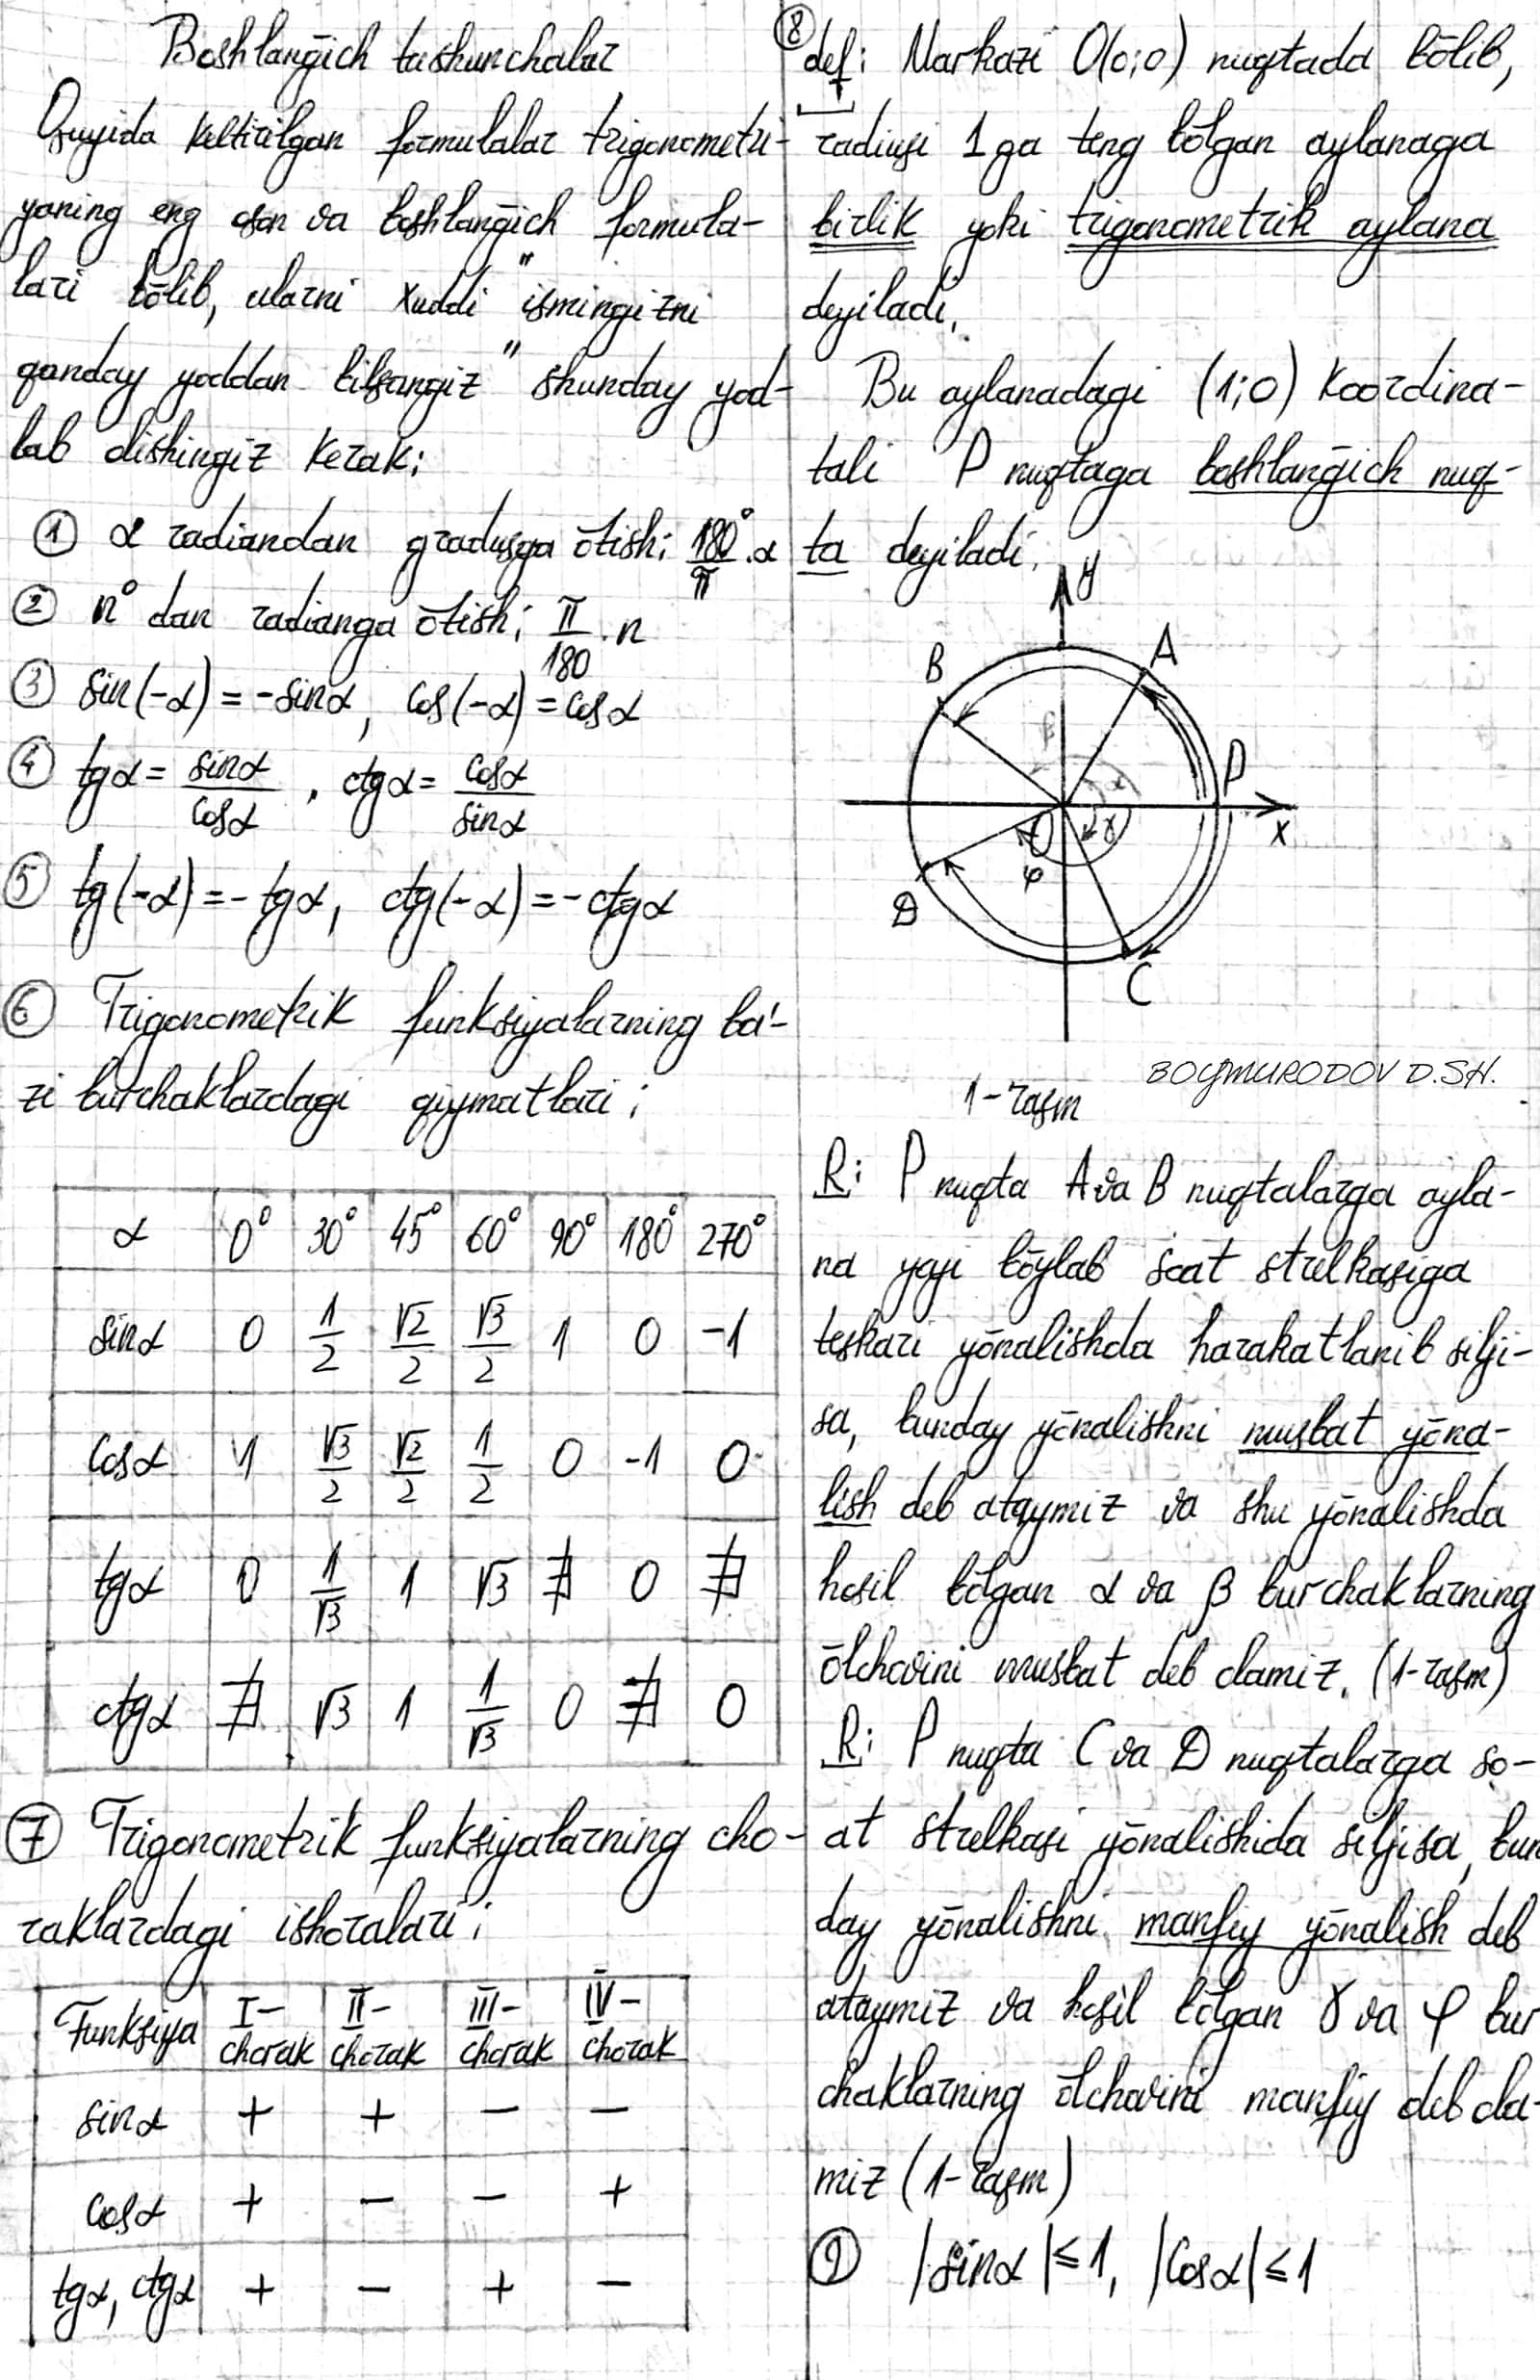 Boshlanḡich tushunchalar
Quyida keltirilgan formulalar trigonometri-
yaning eng oson va boshlanḡich formula-
lari bōlib, ularni xuddi "ismingizni
qanday yoddan bilsangiz" shunday yod-
lab olishingiz kerak:
① α radiandan gradusga ōtish: 180°/π · α
② n° dan radianga ōtish: π/180 · n
③ sin(-α) = -sinα, cos(-α) = cosα
④ tgα = sinα/cosα, ctgα = cosα/sinα
⑤ tg(-α) = -tgα, ctg(-α) = -ctgα
⑥ Trigonometrik funksiyalarning ba'-
zi burchaklardagi qiymatlari:
α 0° 30° 45° 60° 90° 180° 270°
sinα 0 1/2 √2/2 √3/2 1 0 -1
cosα 1 √3/2 √2/2 1/2 0 -1 0
tgα 0 1/√3 1 √3 ∄ 0 ∄
ctgα ∄ √3 1 1/√3 0 ∄ 0
⑦ Trigonometrik funksiyalarning cho-
raklardagi ishoralari:
Funksiya I- chorak II- chorak III- chorak IV- chorak
sinα + + - -
cosα + - - +
tgα, ctgα + - + -
⑧ def: Markazi O(0;0) nuqtada bōlib,
radiusi 1 ga teng bōlgan aylanaga
birlik yoki trigonometrik aylana
deyiladi.
Bu aylanadagi (1;0) koordina-
tali P nuqtaga boshlanḡich nuq-
ta deyiladi.
y
B A
β α P
O γ x
φ
D
C
BOYMURODOV D.SH.
1-rasm
R: P nuqta A va B nuqtalarga ayla-
na yoyi bōylab soat strelkasiga
teskari yōnalishda harakatlanib silji-
sa, bunday yōnalishni musbat yōna-
lish deb ataymiz va shu yōnalishda
hosil bōlgan α va β burchaklarning
ōlchovini musbat deb olamiz. (1-rasm)
R: P nuqta C va D nuqtalarga so-
at strelkasi yōnalishida siljisa, bun
day yōnalishni manfiy yōnalish deb
ataymiz va hosil bōlgan γ va φ bur
chaklarning ōlchovini manfiy deb ola-
miz (1-rasm)
⑨ |sinα| ≤ 1, |cosα| ≤ 1